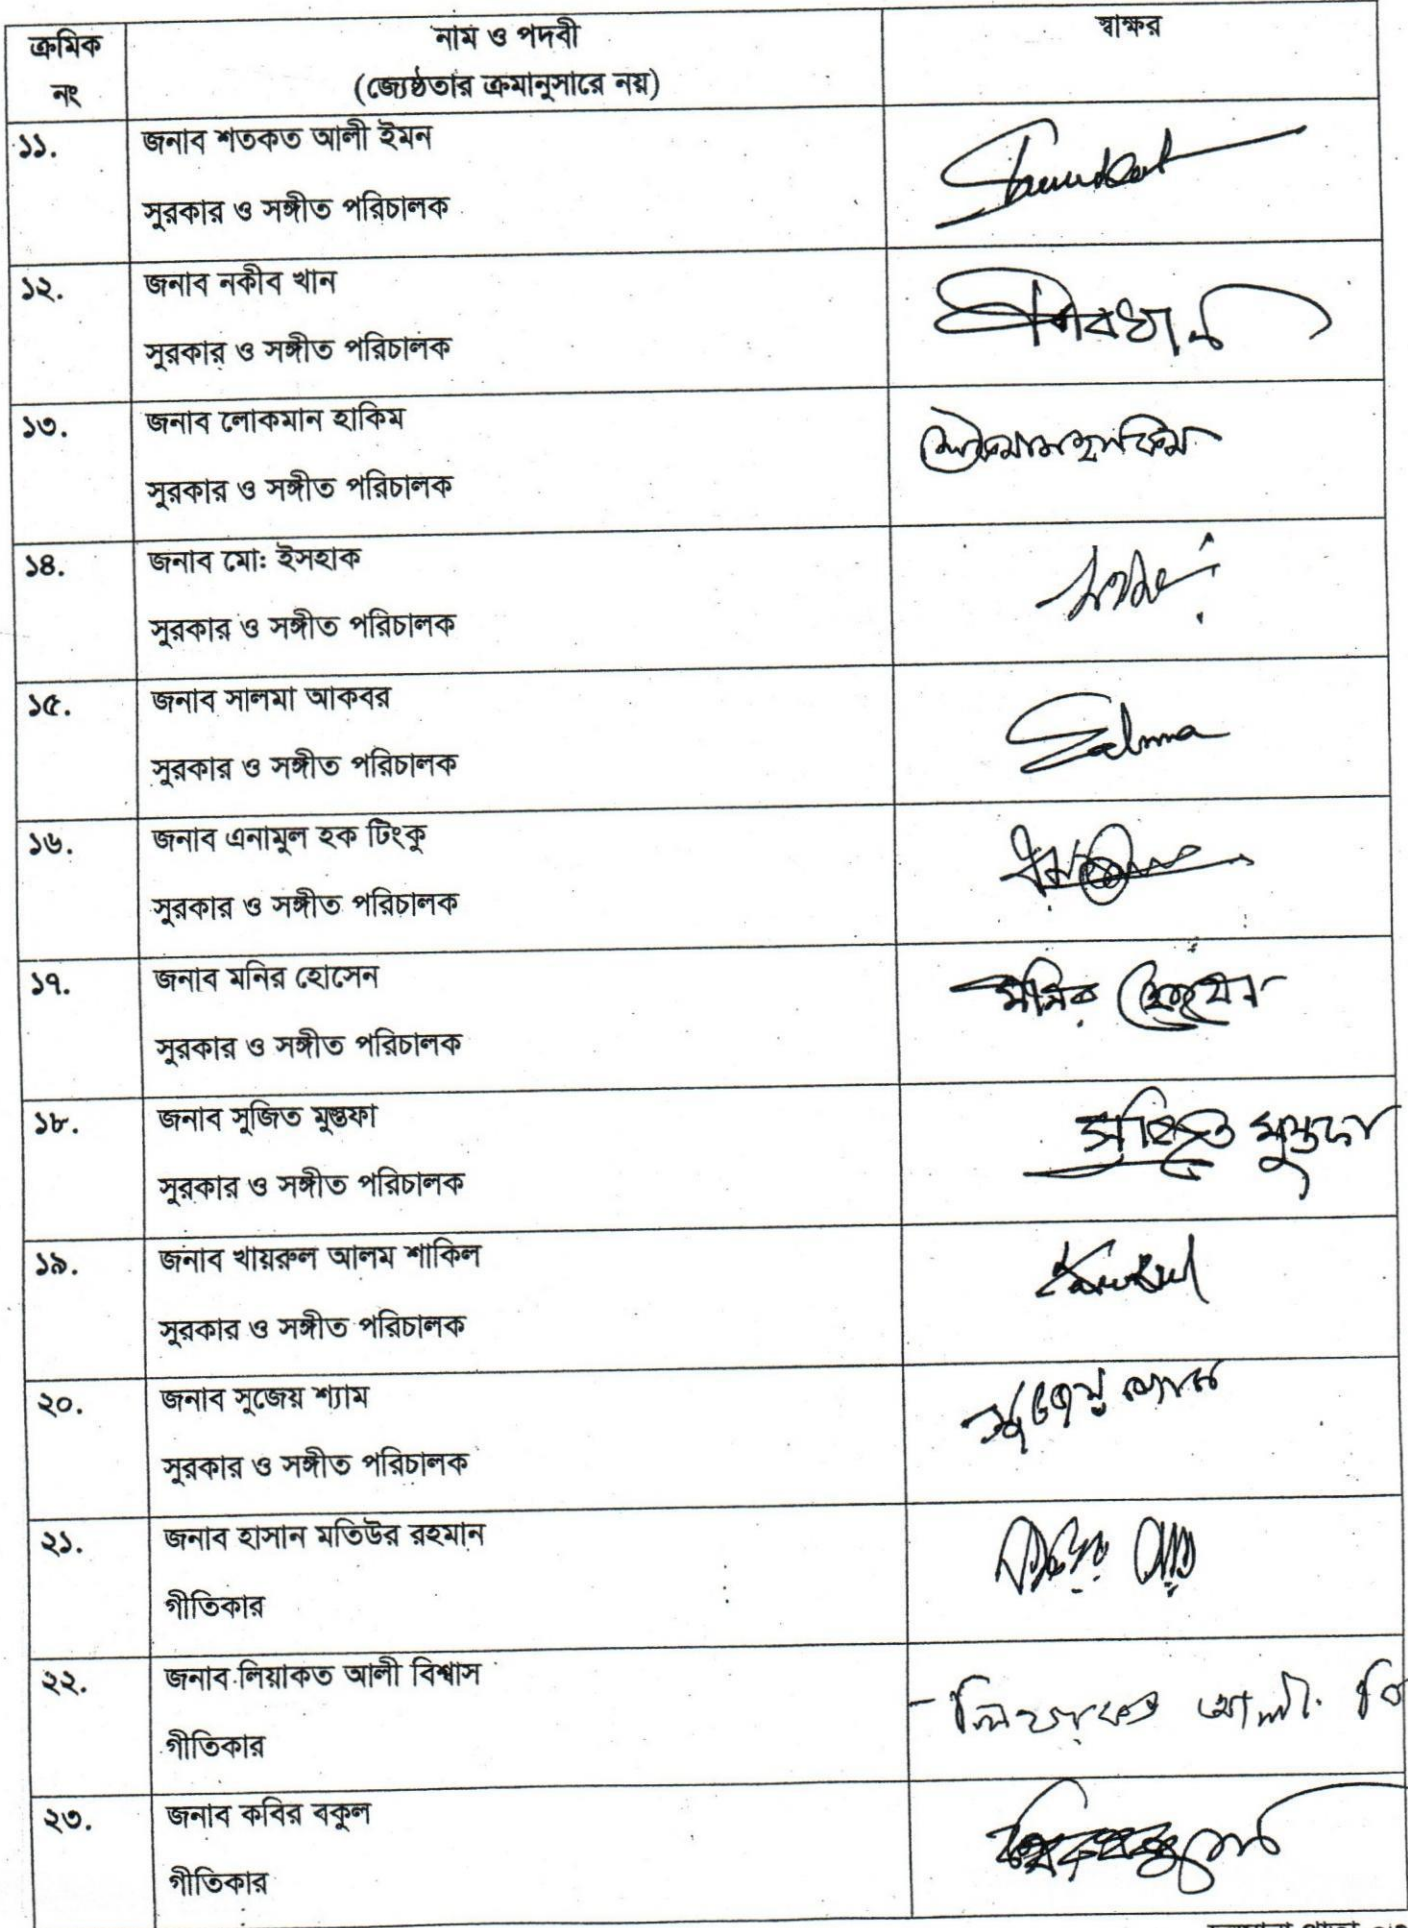 ক্রমিক নং | নাম ও পদবী (জ্যেষ্ঠতার ক্রমানুসারে নয়) | স্বাক্ষর
১১. জনাব শতকত আলী ইমন
সুরকার ও সঙ্গীত পরিচালক
১২. জনাব নকীব খান
সুরকার ও সঙ্গীত পরিচালক
১৩. জনাব লোকমান হাকিম লোকমান হাকিম
সুরকার ও সঙ্গীত পরিচালক
১৪. জনাব মো: ইসহাক
সুরকার ও সঙ্গীত পরিচালক
১৫. জনাব সালমা আকবর Salma
সুরকার ও সঙ্গীত পরিচালক
১৬. জনাব এনামুল হক টিংকু
সুরকার ও সঙ্গীত পরিচালক
১৭. জনাব মনির হোসেন মনির হোসেন
সুরকার ও সঙ্গীত পরিচালক
১৮. জনাব সুজিত মুস্তফা সুজিত মুস্তফা
সুরকার ও সঙ্গীত পরিচালক
১৯. জনাব খায়রুল আলম শাকিল
সুরকার ও সঙ্গীত পরিচালক
২০. জনাব সুজেয় শ্যাম সুজেয় শ্যাম
সুরকার ও সঙ্গীত পরিচালক
২১. জনাব হাসান মতিউর রহমান
গীতিকার
২২. জনাব লিয়াকত আলী বিশ্বাস লিয়াকত আলী বি
গীতিকার
২৩. জনাব কবির বকুল
গীতিকার